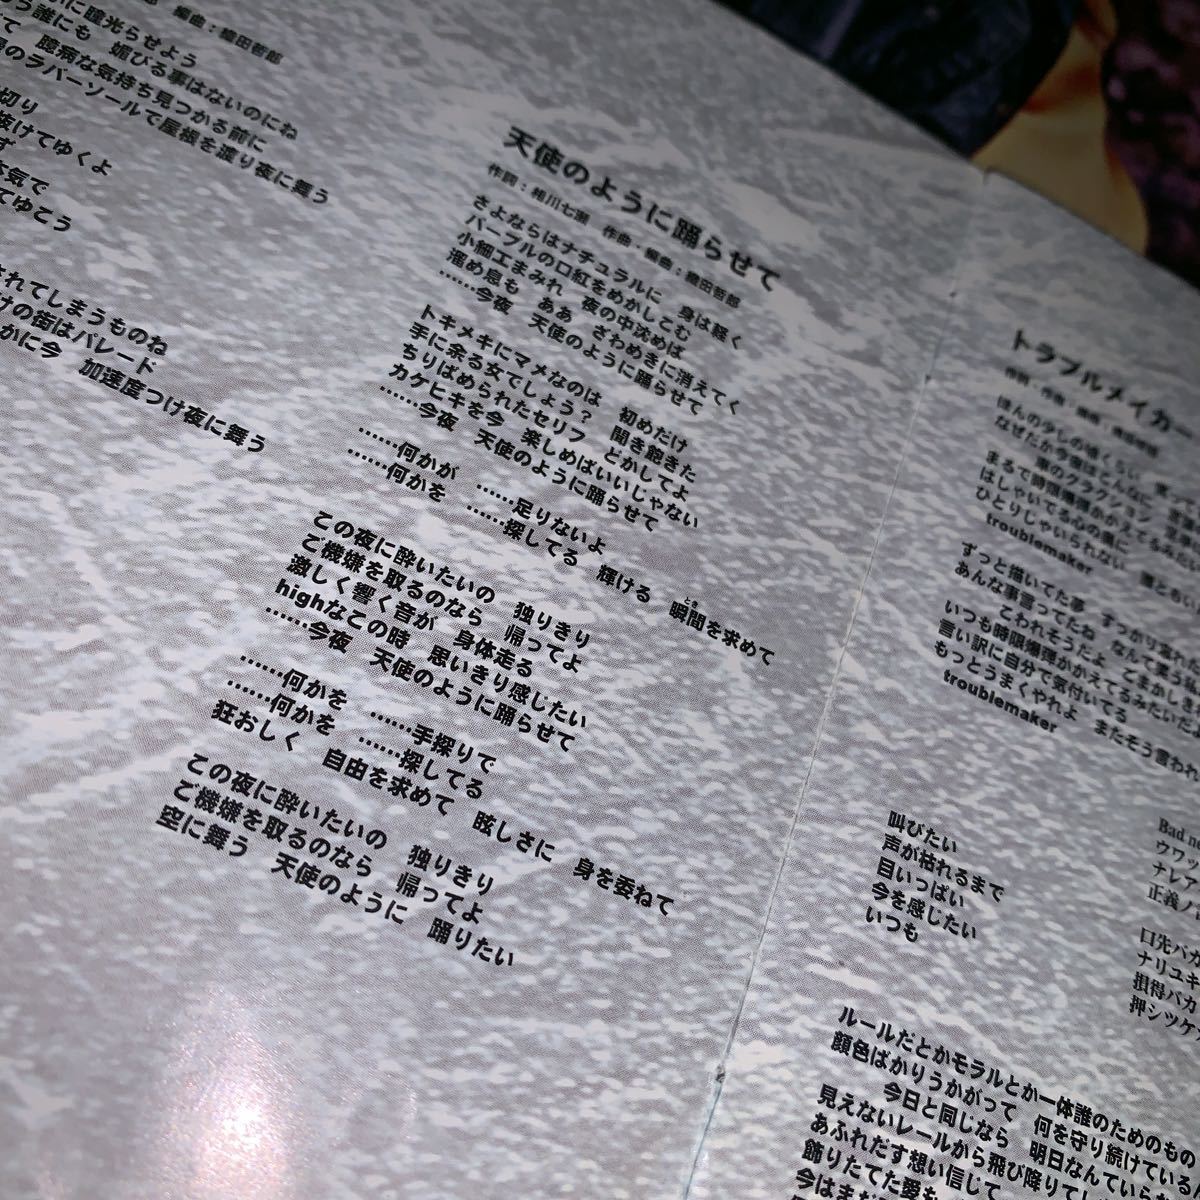 編曲：織田哲郎
に瞳光らせよう
う誰にも　媚びる事はないのにね
て　臆病な気持ち見つかる前に
のラバーソールで屋根を渡り夜に舞う
切り
抜けてゆくよ
ず
気で
てゆこう
されてしまうものね
けの街はパレード
かに今　加速度つけ夜に舞う
天使のように踊らせて
作詞：相川七瀬　作曲・編曲：織田哲郎
さよならはナチュラルに　身は軽く
パープルの口紅をめかしこむ
小細工まみれ　夜の中沈めば
溜め息も　ああ　ざわめきに消えてく
……今夜　天使のように踊らせて
トキメキにマメなのは　初めだけ
手に余る女でしょう？　聞き飽きた
ちりばめられたセリフ　とかしてよ
カケヒキを今　楽しめばいいじゃない
……今夜　天使のように踊らせて
……何かが　……足りないよ
……何かを　……探してる　輝ける　瞬間を求めて
とき
この夜に酔いたいの　独りきり
ご機嫌を取るのなら　帰ってよ
激しく響く音が　身体走る
highなこの時　思いきり感じたい
……今夜　天使のように踊らせて
……何かを　……手探りで
……何かを　……探してる
狂おしく　自由を求めて　眩しさに　身を委ねて
この夜に酔いたいの　独りきり
ご機嫌を取るのなら　帰ってよ
空に舞う　天使のように　踊りたい
トラブルメイカー
作詞・作曲・編曲：織田哲郎
ほんの少しの頃くらい
なぜだか今夜はこんなに
車のクラクション
まるで時限爆弾かかえてるみたい
はしゃいでる心の裏に
ひとりじゃいられない　誰ともい
troublemaker
ずっと描いてた夢　すっかり
あんな事言ってたね　なんて笑う
こわれそうだよ　ごまかしき
いつも時限爆弾かかえてるみたいだよ
言い訳に自分で気付いてる
もっとうまくやれよ　またそう言われ
troublemaker
叫びたい
声が枯れるまで
目いっぱい
今を感じたい
いつも
Bad ne
ウワッ
ナレア
正義ノ
口先バカ
ナリユキ
損得バカ
押シツケ
ルールだとかモラルとか一体誰のためのもの
顔色ばかりうかがって　何を守り続けている
今日と同じなら　明日なんていら
見えないレールから飛び降りて
あふれだす想い信じて
飾りたてた愛も
今はまだ